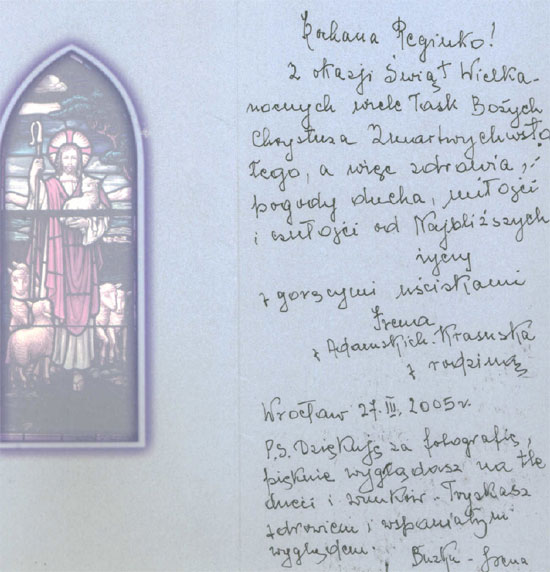 Kochana Reginko!
Z okazji Świąt Wielka-
nocnych wiele Łask Bożych
Chrystusa Zmartwychwsta
łego, a więc zdrowia,
pogody ducha, miłości
i czułości od Najbliższych
życzy
z gorącymi uściskami
Irena
z Adamskich-Krasuska
z rodziną
Wrocław 27.III.2005r.
P.S. Dziękuję za fotografię,
pięknie wyglądasz na tle
dzieci i wnuków - Tryskasz
zdrowiem i wspaniałym
wyglądem.
Irena